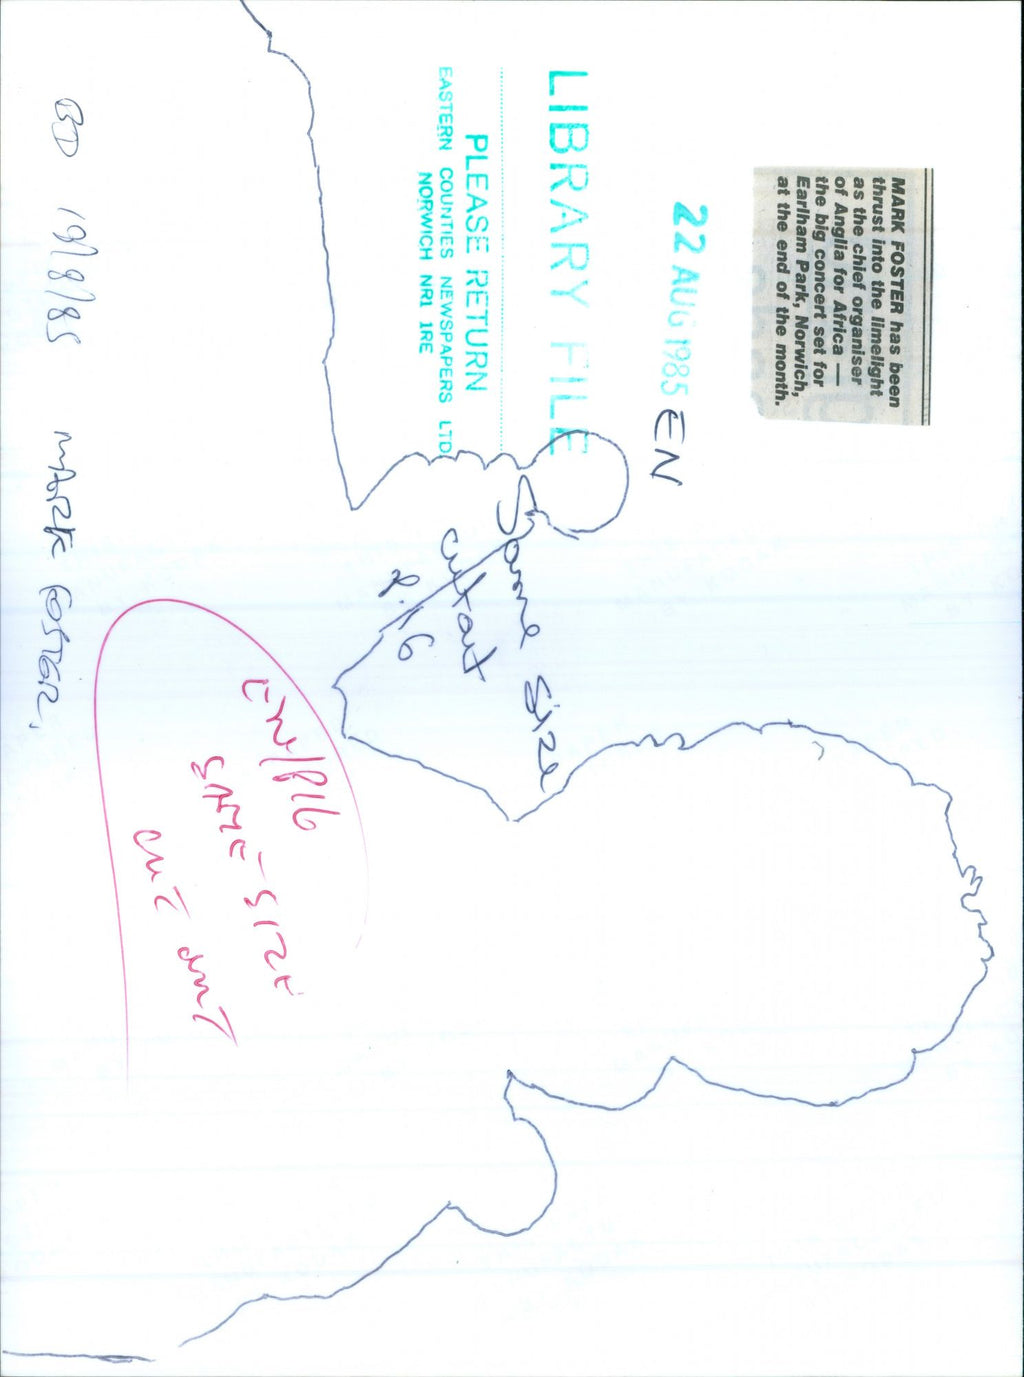 MARK FOSTER has been
thrust into the limelight
as the chief organiser
of Anglia for Africa —
the big concert set for
Earlham Park, Norwich,
at the end of the month.
22 AUG 1985 EN
LIBRARY FILE
PLEASE RETURN
EASTERN COUNTIES NEWSPAPERS LTD
NORWICH NR1 1RE
Same Size
cutout
P.16
P16
SAME SIZE
CUT OUT
BD 19/8/85 MARK FOSTER.